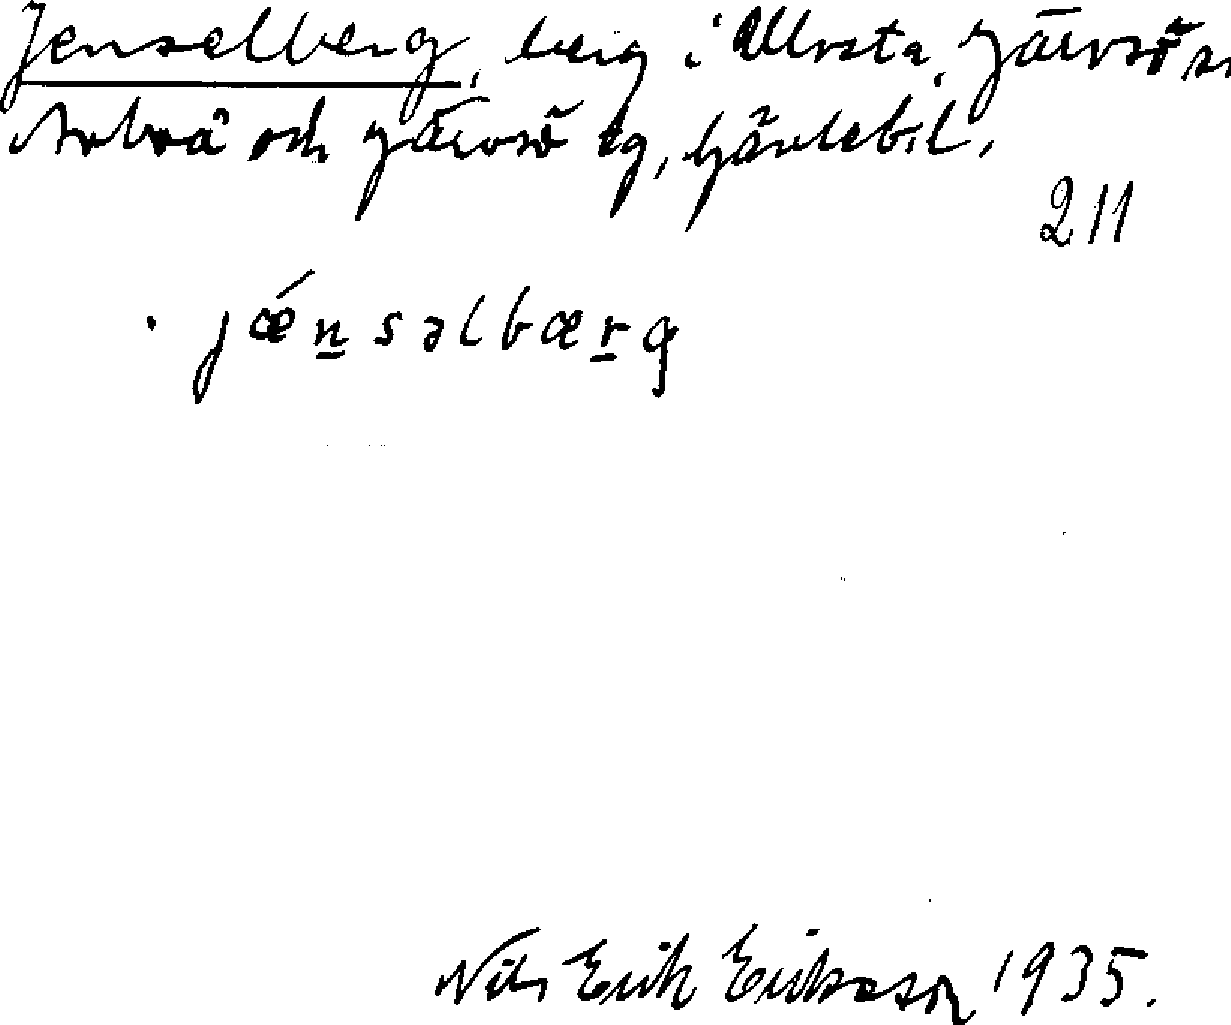 Jenselberg, berg i Ullsta, Järvsö sn
Arbrå och Järvsö tg, Gävlebil.
211
. jǽn̲səlbær̲g
Nils Erik Eriksson 1935.